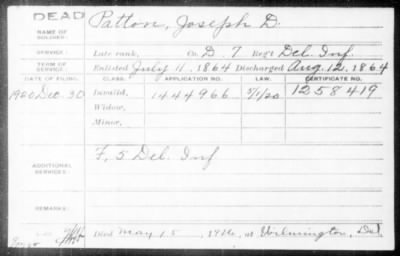 DEAD
NAME OF SOLDIER: Patton, Joseph D.
SERVICE: Late rank, Co. D. 7 Reg't Del. Inf.
TERM OF SERVICE: Enlisted July 11, 1864 Discharged Aug. 12, 1864
DATE OF FILING. CLASS. APPLICATION NO. LAW. CERTIFICATE NO.
1920 Dec. 30 Invalid, 1444966 5/1/20 1258419
Widow,
Minor,
ADDITIONAL SERVICES: F, 5 Del. Inf
REMARKS:
Died May 15, 1926, at Wilmington, Del.